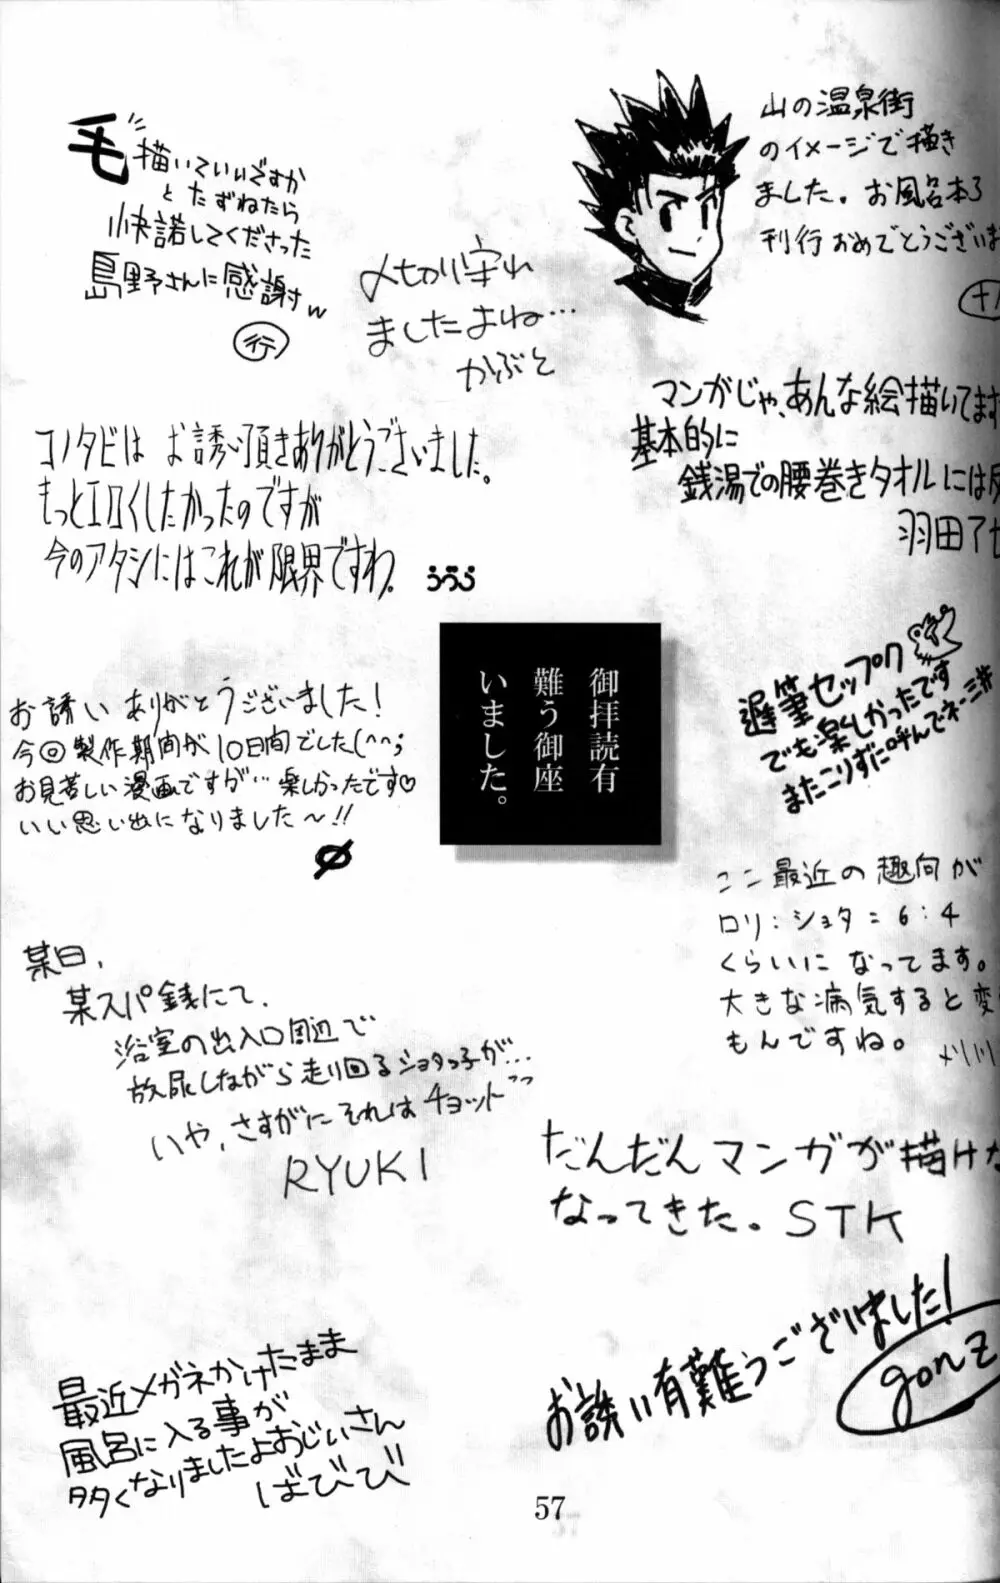 毛描いていいですか
とたずねたら
快諾してくださった
島野さんに感謝w
行
〆切り守れ
ましたよね…
かぶと
山の温泉街
のイメージで描き
ました。お風呂本
刊行おめでとうございま
マンがじゃ、あんな絵描いてます
基本的に
銭湯での腰巻きタオルには
羽田
コノタビは お誘い頂きありがとうございました。
もっとエロくしたかったのですが
今のアタシにはこれが限界ですわ。
うづら
御拝読有
難う御座
いました。
遅筆セップク
でも楽しかったです
またこりずに呼んでネー
お誘いありがとうございました!
今回製作期間が10日間でした(^^;
お見苦しい漫画ですが… 楽しかったです♡
いい思い出になりました〜!!
ここ最近の趣向が
ロリ:ショタ=6:4
くらいになってます。
大きな病気すると変
もんですね。
某日、
某スパ銭にて、
浴室の出入口周辺で
放尿しながら走り回るショタっ子が…
いや、さすがにそれはチョット
RYUKI
だんだんマンガが描けな
なってきた。STK
お誘い有難うございました!
gonz
最近メガネかけたまま
風呂に入る事が
多くなりましたよおじいさん
ばびび
57